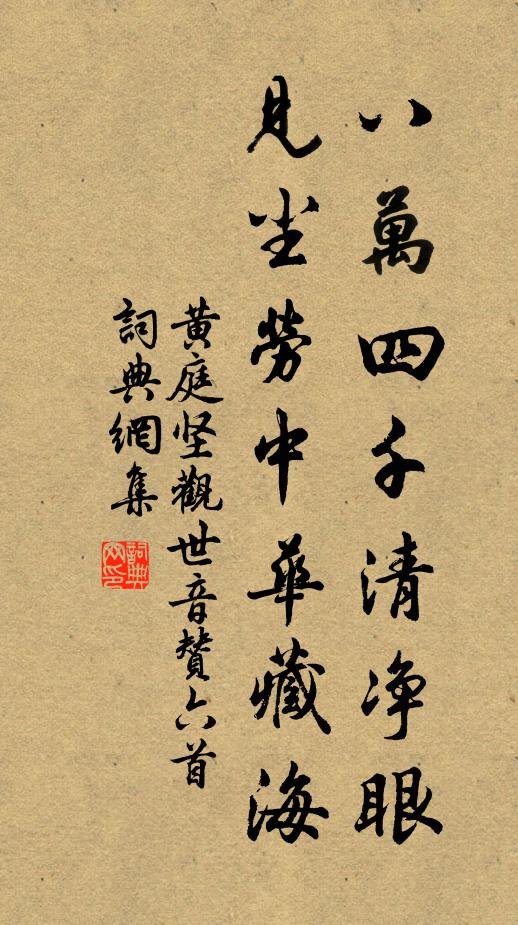 八萬四千清净眼
見尘勞中華藏海
黄庭坚觀世音贊六首
詞典網集
詞典網印